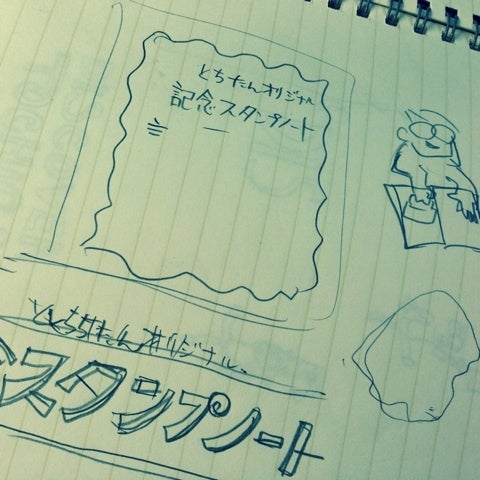 とちたんオリジナル
記念スタンプノート
とちたんオリジナル
スタンプノート